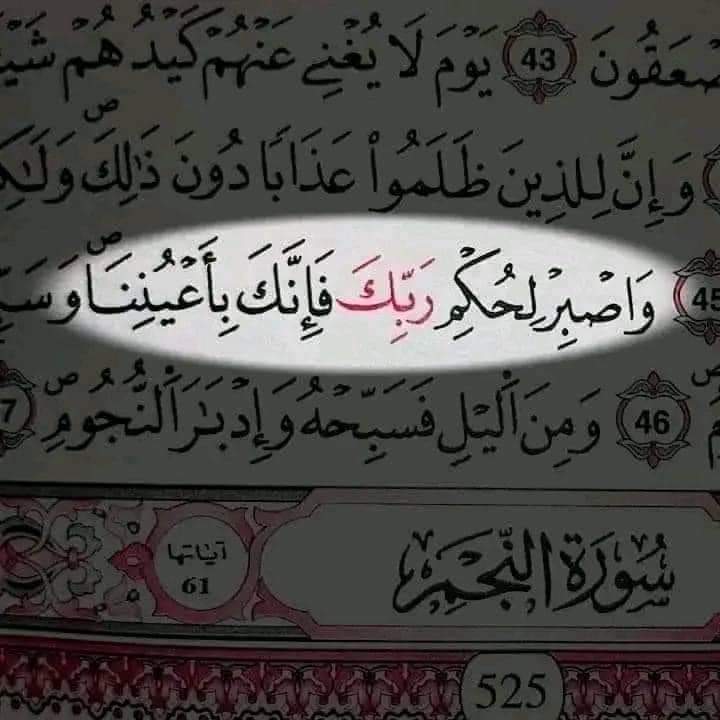 صْعَقُونَ 43 يَوْمَ لَا يُغْنِے عَنْهُمْ كَيْدُهُمْ شَيْـ
وَإِنَّ لِلذِينَ ظَلَمُواْ عَذَابًا دُونَ ذَٰلِكَ وَلَٰكِ
45 وَاصْبِرْ لِحُكْمِ رَبِّكَ فَإِنَّكَ بِأَعْيُنِنَا وَسَبِّ
مَ 46 وَمِنَ اَليْلِ فَسَبِّحْهُ وَإِدْبَٰرَ اَلنُّجُومِ 7
سُورَةُ النَّجْمِ
آيَاتها
61
525